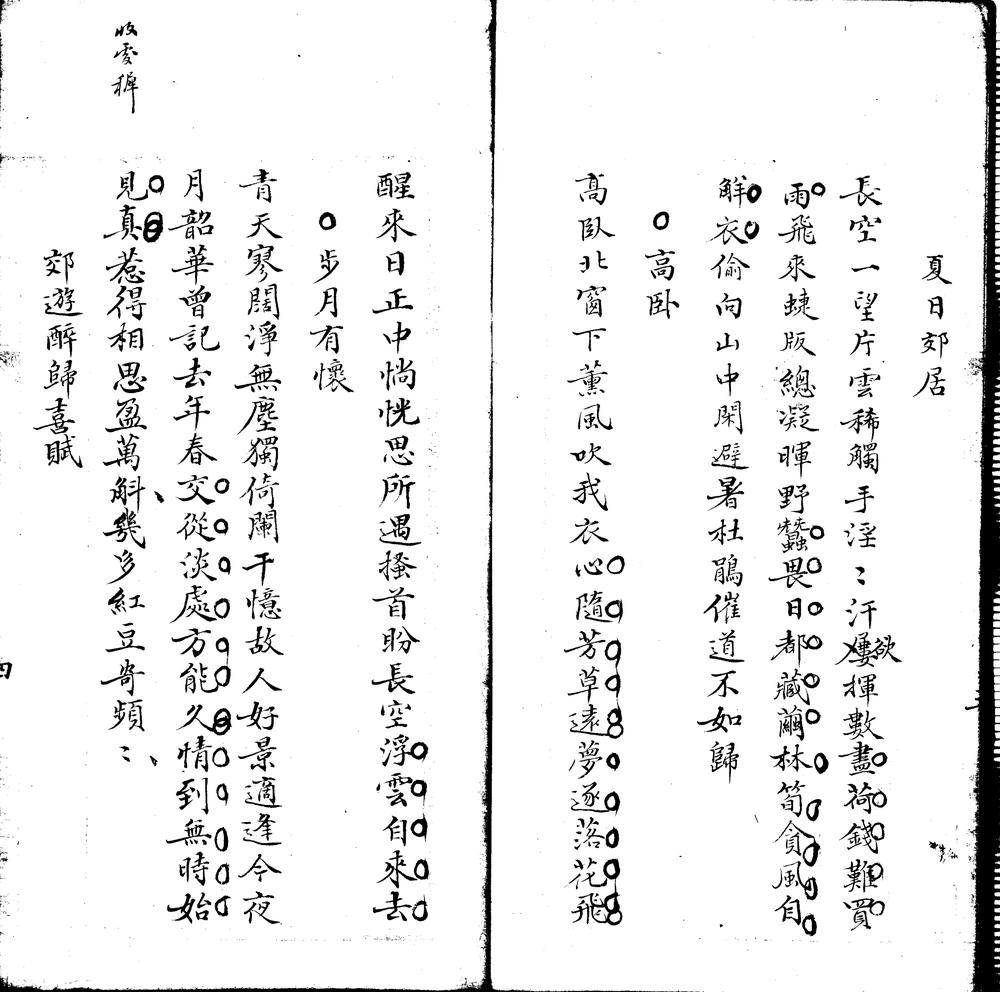 夏日郊居
長空一望片雲稀觸手淫〻汗欲揮數盡荷錢難買
雨飛來蜨版總凝暉野蠶畏日都藏繭林筍貪風自
解衣偷向山中閑避暑杜鵑催道不如歸
高卧
高臥北窗下薰風吹我衣心隨芳草遠夢逐落花飛
醒來日正中惝恍思所遇搔首盼長空浮雲自來去
步月有懷
青天寥闊淨無塵獨倚闌干憶故人好景適逢今夜
月韶華曾記去年春交從淡處方能久情到無時始
見真惹得相思盈萬斛幾多紅豆寄頻〻
郊遊醉歸喜賦
四